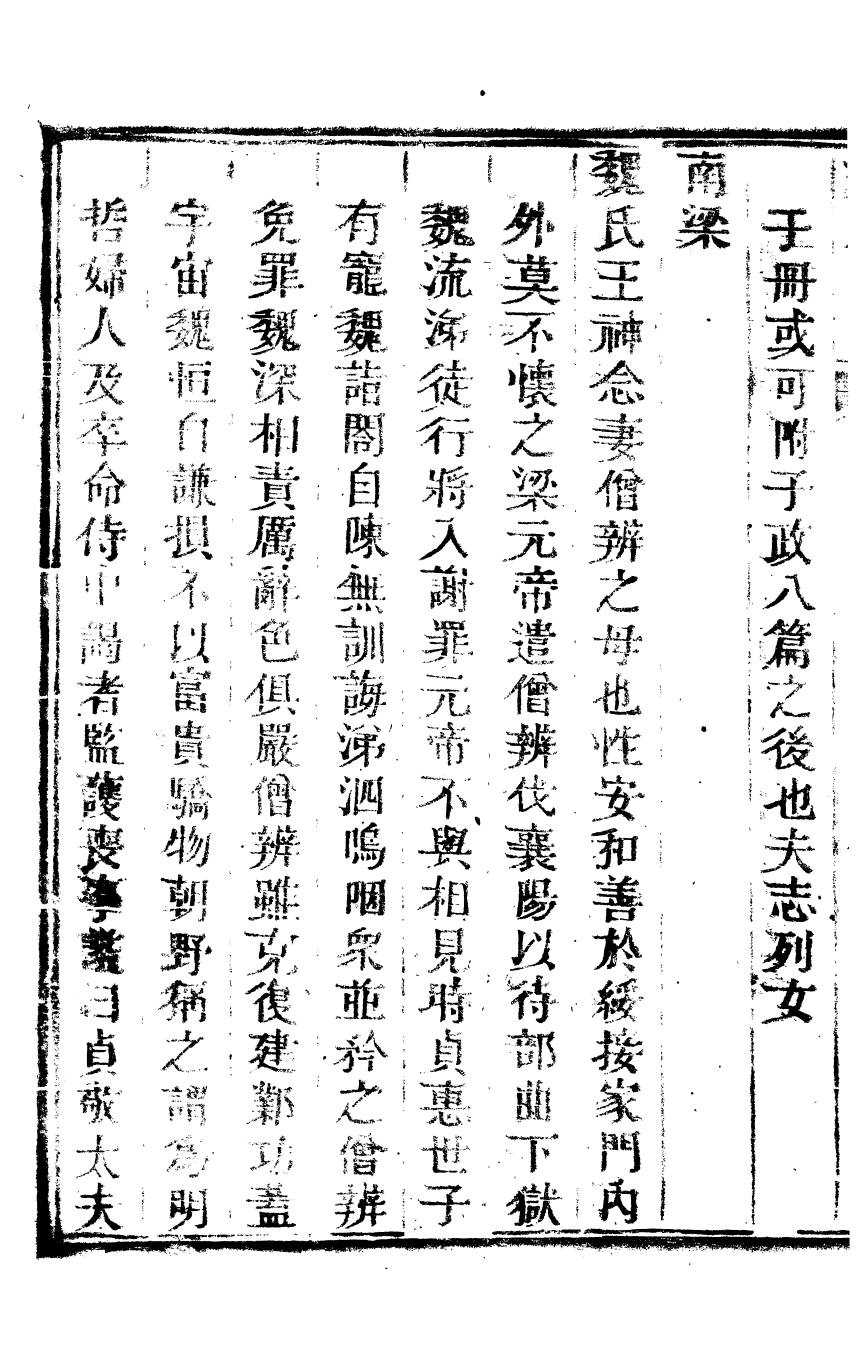 于冊或可附子政八篇之後也夫志列女
南梁
魏氏王神念妻僧辨之母也性安和善於綏接家門内
外莫不懷之梁元帝遣僧辨伐襄陽以待部曲下獄
魏流涕徒行將入謝罪元帝不與相見時貞惠世子
有寵魏詣閤自陳無訓誨涕泗嗚咽衆並矜之僧辨
免罪魏深相責厲辭色俱嚴僧辨雖克復建鄴功蓋
宇宙魏恒自謙損不以富貴驕物朝野稱之謂為明
哲婦人及卒命侍中謁者監護喪事諡曰貞敬太夫